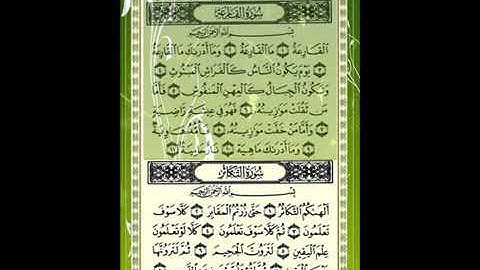 سُورَةُ القَارِعَةِ
بِسْمِ ٱللَّهِ ٱلرَّحْمَٰنِ ٱلرَّحِيمِ
ٱلْقَارِعَةُ ١ مَا ٱلْقَارِعَةُ ٢ وَمَآ أَدْرَىٰكَ مَا ٱلْقَارِعَةُ
٣ يَوْمَ يَكُونُ ٱلنَّاسُ كَٱلْفَرَاشِ ٱلْمَبْثُوثِ
٤ وَتَكُونُ ٱلْجِبَالُ كَٱلْعِهْنِ ٱلْمَنفُوشِ ٥ فَأَمَّا
مَن ثَقُلَتْ مَوَٰزِينُهُۥ ٦ فَهُوَ فِى عِيشَةٍ رَّاضِيَةٍ
٧ وَأَمَّا مَنْ خَفَّتْ مَوَٰزِينُهُۥ ٨ فَأُمُّهُۥ هَاوِيَةٌ
٩ وَمَآ أَدْرَىٰكَ مَا هِيَهْ ١٠ نَارٌ حَامِيَةٌۢ ١١
سُورَةُ التَّكَاثُرِ
بِسْمِ ٱللَّهِ ٱلرَّحْمَٰنِ ٱلرَّحِيمِ
أَلْهَىٰكُمُ ٱلتَّكَاثُرُ ١ حَتَّىٰ زُرْتُمُ ٱلْمَقَابِرَ ٢ كَلَّا سَوْفَ
تَعْلَمُونَ ٣ ثُمَّ كَلَّا سَوْفَ تَعْلَمُونَ ٤ كَلَّا لَوْ تَعْلَمُونَ
عِلْمَ ٱلْيَقِينِ ٥ لَتَرَوُنَّ ٱلْجَحِيمَ ٦ ثُمَّ لَتَرَوُنَّهَا